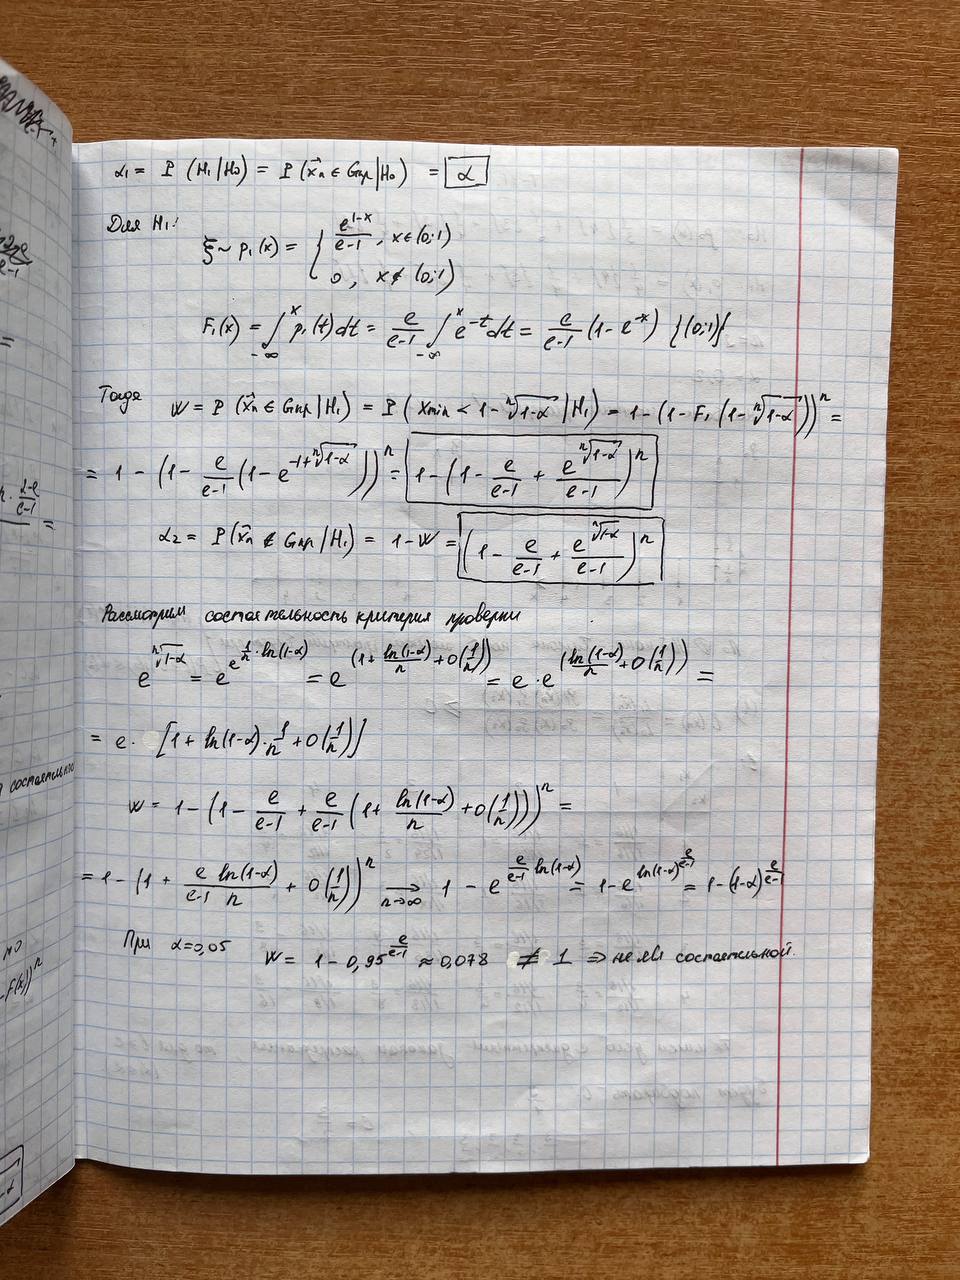 α₁ = P (H₁|H₀) = P (x⃗ₙ ∈ Gкр|H₀) = α
Для H₁:
ξ ~ p₁(x) = { e^(1-x)/(e-1), x∈(0;1)
0, x∉(0;1)
F₁(x) = ∫_{-∞}^{x} p₁(t)dt = e/(e-1) ∫_{-∞}^{x} e^(-t)dt = e/(e-1) (1-e^(-x)) {(0;1)}
Тогда
W = P (x⃗ₙ ∈ Gкр|H₁) = P (xmin < 1 - ⁿ√(1-α) |H₁) = 1 - (1 - F₁ (1 - ⁿ√(1-α)))ⁿ =
= 1 - (1 - e/(e-1) (1 - e^(-1+ⁿ√(1-α))))ⁿ = 1 - (1 - e/(e-1) + e^(ⁿ√(1-α))/(e-1))ⁿ
α₂ = P(x⃗ₙ ∉ Gкр|H₁) = 1-W = (1 - e/(e-1) + e^(ⁿ√(1-α))/(e-1))ⁿ
Рассмотрим состоятельность критерия проверки
e^(ⁿ√(1-α)) = e^(e^(1/n · ln(1-α))) = e^(1 + ln(1-α)/n + O(1/n)) = e · e^(ln(1-α)/n + O(1/n)) =
= e · [1 + ln(1-α) · 1/n + O(1/n)]
W = 1 - (1 - e/(e-1) + e/(e-1) (1 + ln(1-α)/n + O(1/n)))ⁿ =
= 1 - (1 + e/(e-1) ln(1-α)/n + O(1/n))ⁿ →_{n→∞} 1 - e^(e/(e-1) ln(1-α)) = 1 - e^(ln(1-α)^(e/(e-1))) = 1-(1-α)^(e/(e-1))
При α=0,05 W = 1 - 0,95^(e/(e-1)) ≈ 0,078 ≠ 1 ⇒ не явл состоятельной.